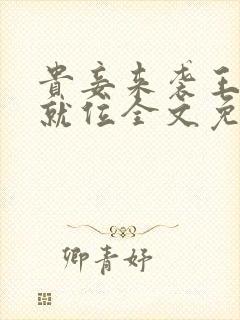 贵妾来袭王
就位全文免
卿青妤